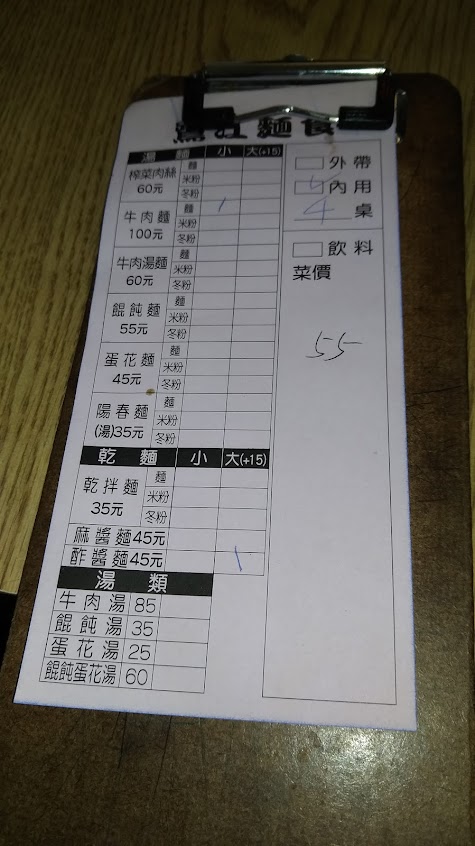 麵食
湯 麵 小 大(+15)
榨菜肉絲 60元 麵 米粉 冬粉
牛肉麵 100元 麵 1 米粉 冬粉
牛肉湯麵 60元 麵 米粉 冬粉
餛飩麵 55元 麵 米粉 冬粉
蛋花麵 45元 麵 米粉 冬粉
陽春麵 (湯)35元 麵 米粉 冬粉
乾 麵 小 大(+15)
乾拌麵 35元 麵 米粉 冬粉
麻醬麵45元
酢醬麵45元 1
湯 類
牛肉湯 85
餛飩湯 35
蛋花湯 25
餛飩蛋花湯 60
外帶
內用
4 桌
飲料
菜價
55